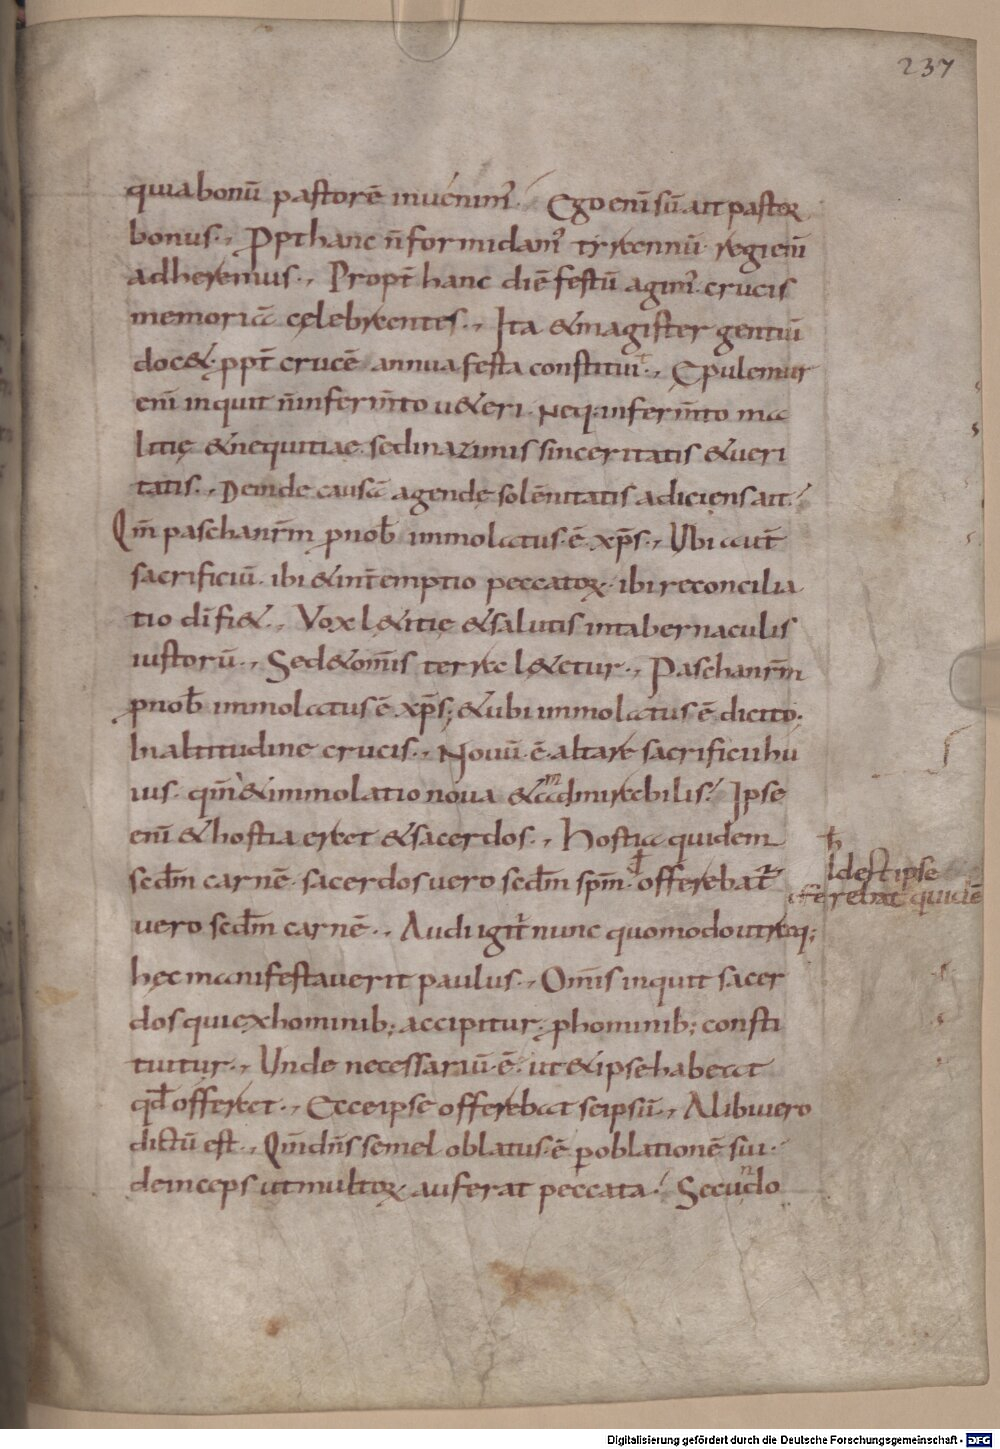 237
quia bonū pastorē inuenim᾽. Ego eni᷄ sū ait pastor
bonus. Ppt̄ hanc n̄ formidam᾽ tyrannū. regi eni᷄
adheremus. Propt̄ hanc diē festū agim᾽. crucis
memoria celebrantes. Ita & magister gentiū
doc&. ppt̄ crucē annua festa constitui. Epulemur
eni᷄ inquit n̄ in ferm̄to u&eri. Neq. in ferm̄to ma
litię & nequitiae. sed in azimis sinceritatis & ueri
tatis. Deinde causā agendę solēnitatis adiciens ait.
Qm̄ pascha nr̄m p nob̄ immolatus. ē. xp̄s. Ubi aut̄
sacrificiū. ibi & int̄emptio peccatoꝝ. ibi reconcilia
tio di᷄ fi&. Vox l&itię & salutis in tabernaculis
iustorū. Sed & om̄s terra l&etur. Pascha nr̄m
p nob̄ immolatus ē xp̄s; & ubi immolatus ē dicito.
In altitudine crucis. Nouū. ē. altare sacrificii hu
ius. qm̄ & immolatio noua & admirabilis. Ipse
eni᷄ & hostia erat & sacerdos. Hostia quidem
scdm̄ carnē. sacerdos uero scdm̄ spm̄. offerebat᷑
uero scdm̄ carnē. Audi igit᷑ nunc quomodo utraq;
hęc manifestauerit paulus. Om̄is inquit sacer
dos qui ex hominib; accipitur. p hominib; consti
tuitur. Unde necessariū. ē. ut & ipse habeat
qd̄ offerat. Ecce ipse offerebat seipsū. Alibi uero
dictū est. Qm̄ dn̄s semel oblatus. ē p oblationē sui.
deinceps ut multoꝝ auferat peccata. Secundo
h̄
Id est ipse
offerebat quidē